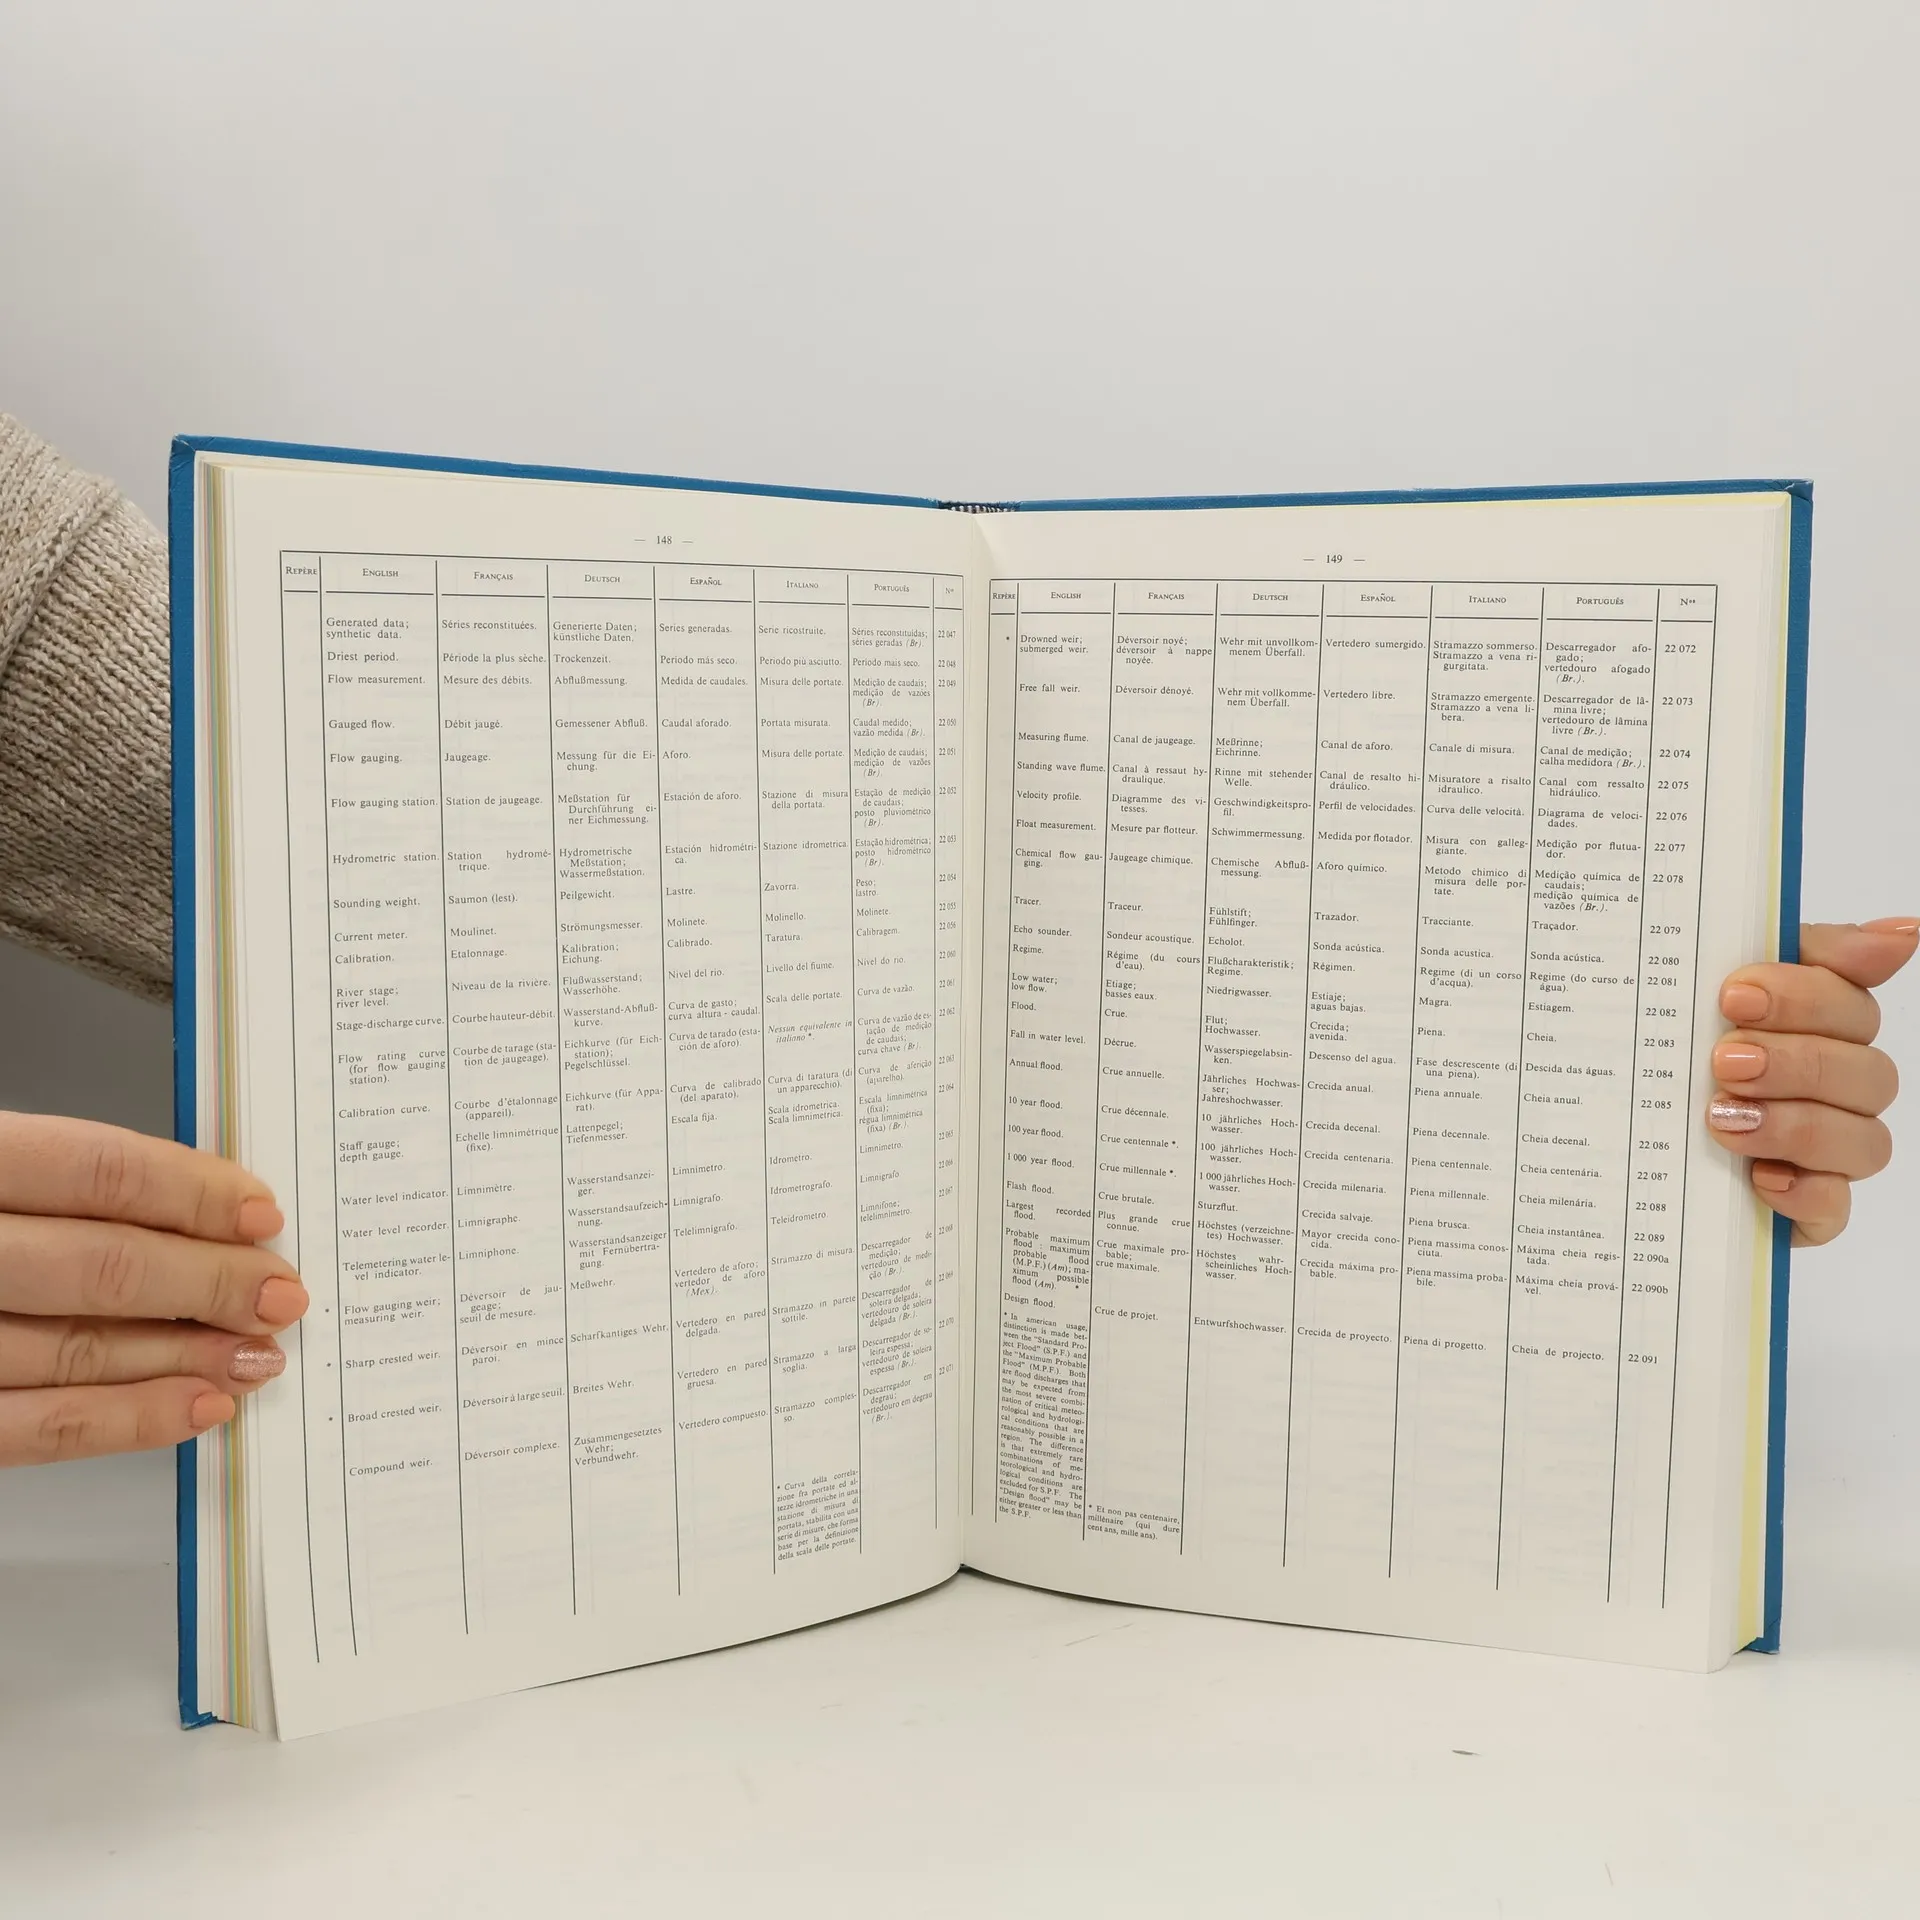 — 148 —
REPÈRE
ENGLISH
FRANÇAIS
DEUTSCH
ESPAÑOL
ITALIANO
PORTUGUÊS
Nos
Generated data;
synthetic data.
Séries reconstituées.
Generierte Daten;
künstliche Daten.
Series generadas.
Serie ricostruite.
Séries reconstituídas;
séries geradas (Br).
22 047
Driest period.
Période la plus sèche.
Trockenzeit.
Periodo más seco.
Periodo più asciutto.
Periodo mais seco.
22 048
Flow measurement.
Mesure des débits.
Abflußmessung.
Medida de caudales.
Misura delle portate.
Medição de caudais;
medição de vazões
(Br).
22 049
Gauged flow.
Débit jaugé.
Gemessener Abfluß.
Caudal aforado.
Portata misurata.
Caudal medido;
vazão medida (Br).
22 050
Flow gauging.
Jaugeage.
Messung für die Ei-
chung.
Aforo.
Misura delle portate.
Medição de caudais;
medição de vazões
(Br).
22 051
Flow gauging station.
Station de jaugeage.
Meßstation für
Durchführung ei-
ner Eichmessung.
Estación de aforo.
Stazione di misura
della portata.
Estação de medição
de caudais;
posto pluviométrico
(Br).
22 052
Hydrometric station.
Station hydromé-
trique.
Hydrometrische
Meßstation;
Wassermeßstation.
Estación hidrométri-
ca.
Stazione idrometrica.
Estação hidrométrica;
posto hidrométrico
(Br).
22 053
Sounding weight.
Saumon (lest).
Peilgewicht.
Lastre.
Zavorra.
Peso;
lastro.
22 054
Current meter.
Moulinet.
Strömungsmesser.
Molinete.
Molinello.
Molinete.
22 055
Calibration.
Etalonnage.
Kalibration;
Eichung.
Calibrado.
Taratura.
Calibragem.
22 056
River stage;
river level.
Niveau de la rivière.
Flußwasserstand;
Wasserhöhe.
Nivel del río.
Livello del fiume.
Nivel do rio.
22 060
Stage-discharge curve.
Courbe hauteur-débit.
Wasserstand-Abfluß-
kurve.
Curva de gasto;
curva altura - caudal.
Scala delle portate.
Curva de vazão.
22 061
Flow rating curve
(for flow gauging
station).
Courbe de tarage (sta-
tion de jaugeage).
Eichkurve (für Eich-
station);
Pegelschlüssel.
Curva de tarado (esta-
ción de aforo).
Nessun equivalente in
italiano *.
Curva de vazão de es-
tação de medição
de caudais;
curva chave (Br).
22 062
Calibration curve.
Courbe d'étalonnage
(appareil).
Eichkurve (für Appa-
rat).
Curva de calibrado
(del aparato).
Curva di taratura (di
un apparecchio).
Curva de aferição
(aparelho).
22 063
Staff gauge;
depth gauge.
Echelle limnimétrique
(fixe).
Lattenpegel;
Tiefenmesser.
Escala fija.
Scala idrometrica.
Scala limnimetrica.
Escala limnimétrica
(fixa);
régua limnimétrica
(fixa) (Br.).
22 064
Water level indicator.
Limnimètre.
Wasserstandsanzei-
ger.
Limnímetro.
Idrometro.
Limnímetro.
22 065
Water level recorder.
Limnigraphe.
Wasserstandsaufzeich-
nung.
Limnígrafo.
Idrometrografo.
Limnígrafo
22 066
Telemetering water le-
vel indicator.
Limniphone.
Wasserstandsanzeiger
mit Fernübertra-
gung.
Telelimnígrafo.
Teleidrometro.
Limnifone;
telelimnímetro.
22 067
*
Flow gauging weir;
measuring weir.
Déversoir de jau-
geage;
seuil de mesure.
Meßwehr.
Vertedero de aforo;
vertedor de aforo
(Mex).
Stramazzo di misura.
Descarregador de
medição;
vertedouro de medi-
ção (Br.).
22 068
*
Sharp crested weir.
Déversoir en mince
paroi.
Scharfkantiges Wehr.
Vertedero en pared
delgada.
Stramazzo in parete
sottile.
Descarregador de
soleira delgada;
vertedouro de soleira
delgada (Br.).
22 069
*
Broad crested weir.
Déversoir à large seuil.
Breites Wehr.
Vertedero en pared
gruesa.
Stramazzo a larga
soglia.
Descarregador de so-
leira espessa;
vertedouro de soleira
espessa (Br.).
22 070
Compound weir.
Déversoir complexe.
Zusammengesetztes
Wehr;
Verbundwehr.
Vertedero compuesto.
Stramazzo comples-
so.
Descarregador em
degrau;
vertedouro em degrau
(Br.).
22 071
* Curva della correla-
zione fra portate ed al-
tezze idrometriche in una
stazione di misura di
portata, stabilita con una
serie di misure, che forma
base per la definizione
della scala delle portate.
— 149 —
REPÈRE
ENGLISH
FRANÇAIS
DEUTSCH
ESPAÑOL
ITALIANO
PORTUGUÊS
Nos
*
Drowned weir;
submerged weir.
Déversoir noyé;
déversoir à nappe
noyée.
Wehr mit unvollkom-
menem Überfall.
Vertedero sumergido.
Stramazzo sommerso.
Stramazzo a vena ri-
gurgitata.
Descarregador afo-
gado;
vertedouro afogado
(Br.).
22 072
Free fall weir.
Déversoir dénoyé.
Wehr mit vollkomme-
nem Überfall.
Vertedero libre.
Stramazzo emergente.
Stramazzo a vena li-
bera.
Descarregador de lâ-
mina livre;
vertedouro de lâmina
livre (Br.).
22 073
Measuring flume.
Canal de jaugeage.
Meßrinne;
Eichrinne.
Canal de aforo.
Canale di misura.
Canal de medição;
calha medidora (Br.).
22 074
Standing wave flume.
Canal à ressaut hy-
draulique.
Rinne mit stehender
Welle.
Canal de resalto hi-
dráulico.
Misuratore a risalto
idraulico.
Canal com ressalto
hidráulico.
22 075
Velocity profile.
Diagramme des vi-
tesses.
Geschwindigkeitspro-
fil.
Perfil de velocidades.
Curva delle velocità.
Diagrama de veloci-
dades.
22 076
Float measurement.
Mesure par flotteur.
Schwimmermessung.
Medida por flotador.
Misura con galleg-
giante.
Medição por flutua-
dor.
22 077
Chemical flow gau-
ging.
Jaugeage chimique.
Chemische Abfluß-
messung.
Aforo químico.
Metodo chimico di
misura delle por-
tate.
Medição química de
caudais;
medição química de
vazões (Br.).
22 078
Tracer.
Traceur.
Fühlstift;
Fühlfinger.
Trazador.
Tracciante.
Traçador.
22 079
Echo sounder.
Sondeur acoustique.
Echolot.
Sonda acústica.
Sonda acustica.
Sonda acústica.
22 080
Regime.
Régime (du cours
d'eau).
Flußcharakteristik;
Regime.
Régimen.
Regime (di un corso
d'acqua).
Regime (do curso de
água).
22 081
Low water;
low flow.
Etiage;
basses eaux.
Niedrigwasser.
Estiaje;
aguas bajas.
Magra.
Estiagem.
22 082
Flood.
Crue.
Flut;
Hochwasser.
Crecida;
avenida.
Piena.
Cheia.
22 083
Fall in water level.
Décrue.
Wasserspiegelabsin-
ken.
Descenso del agua.
Fase descrescente (di
una piena).
Descida das águas.
22 084
Annual flood.
Crue annuelle.
Jährliches Hochwas-
ser;
Jahreshochwasser.
Crecida anual.
Piena annuale.
Cheia anual.
22 085
10 year flood.
Crue décennale.
10 jährliches Hoch-
wasser.
Crecida decenal.
Piena decennale.
Cheia decenal.
22 086
100 year flood.
Crue centennale *.
100 jährliches Hoch-
wasser.
Crecida centenaria.
Piena centennale.
Cheia centenária.
22 087
1 000 year flood.
Crue millennale *.
1 000 jährliches Hoch-
wasser.
Crecida milenaria.
Piena millennale.
Cheia milenária.
22 088
Flash flood.
Crue brutale.
Sturzflut.
Crecida salvaje.
Piena brusca.
Cheia instantânea.
22 089
Largest recorded
flood.
Plus grande crue
connue.
Höchstes (verzeichne-
tes) Hochwasser.
Mayor crecida cono-
cida.
Piena massima conos-
ciuta.
Máxima cheia regis-
tada.
22 090a
Probable maximum
flood : maximum
probable flood
(M.P.F.) (Am); ma-
ximum possible
flood (Am). *
Crue maximale pro-
bable;
crue maximale.
Höchstes wahr-
scheinlichen Hoch-
wasser.
Crecida máxima pro-
bable.
Piena massima proba-
bile.
Máxima cheia prová-
vel.
22 090b
Design flood.
Crue de projet.
Entwurfshochwasser.
Crecida de proyecto.
Piena di progetto.
Cheia de projecto.
22 091
* In american usage,
distinction is made bet-
ween the "Standard Pro-
ject Flood" (S.P.F.) and
the "Maximum Probable
Flood" (M.P.F.). Both
are flood discharges that
may be expected from
the most severe combi-
nation of critical meteo-
rological and hydrologi-
cal conditions that are
reasonably possible in a
region. The difference
is that extremely rare
combinations of me-
teorological and hydro-
logical conditions are
excluded for S.P.F. The
"Design flood" may be
either greater or less than
the S.P.F.
* Et non pas centenaire,
millénaire (qui dure
cent ans, mille ans).